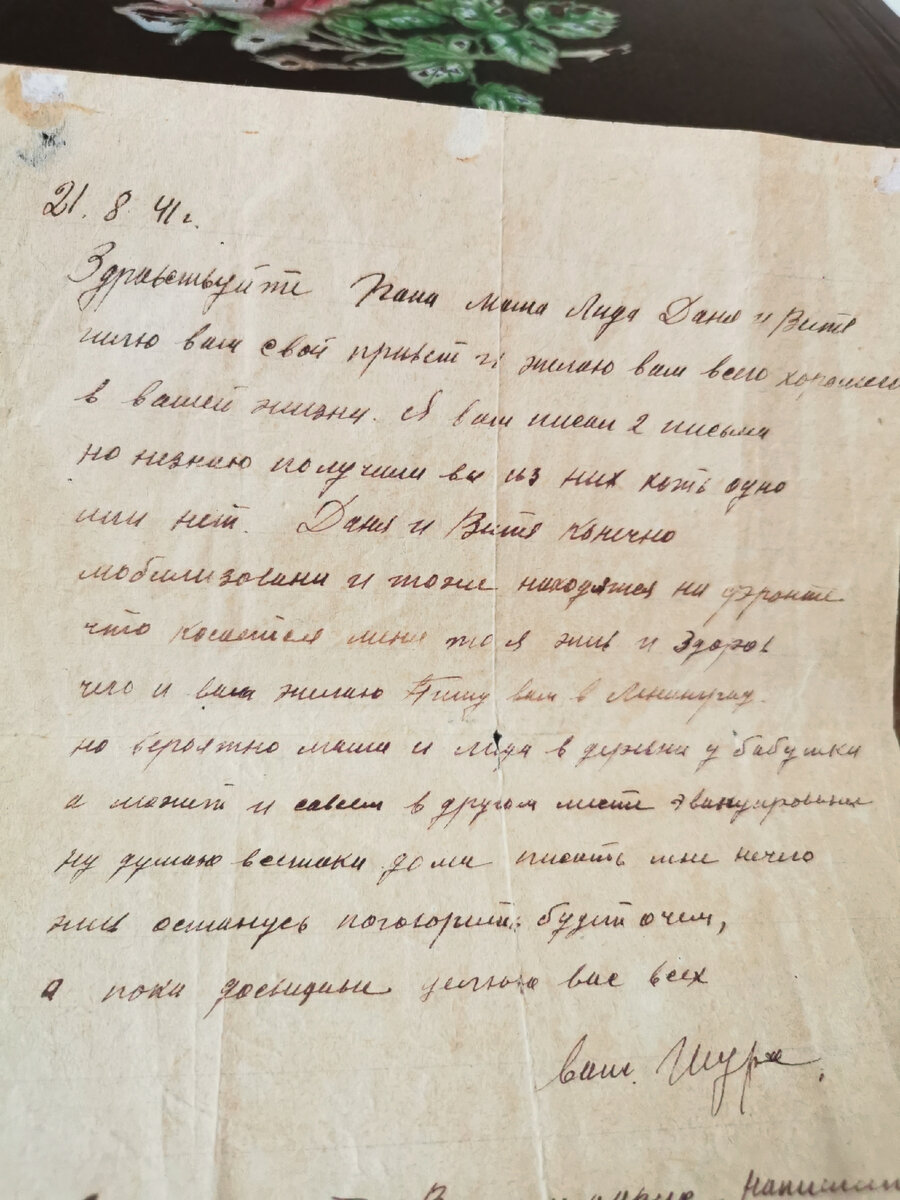 21. 8. 41 г.
Здравствуйте Папа Маша Лида Даня и Витя
шлю вам свой привет и желаю вам всего хорошего
в вашей жизни. Я вам писал 2 письма
но незнаю получили вы из них хоть одно
или нет. Даня и Витя конечно
мобилизованы и тоже находятся на фронте
что касается меня то я жив и Здоров
чего и вам желаю Пишу вам в Ленинград
но вероятно маша и лида в деревни у бабушки
а может и совсем в другом месте эвакуированы
ну думаю всетаки дома писать мне нечего
жив останусь поговорить будет очем,
а пока досвидание целую вас всех
ваш. Шура.
Напишите